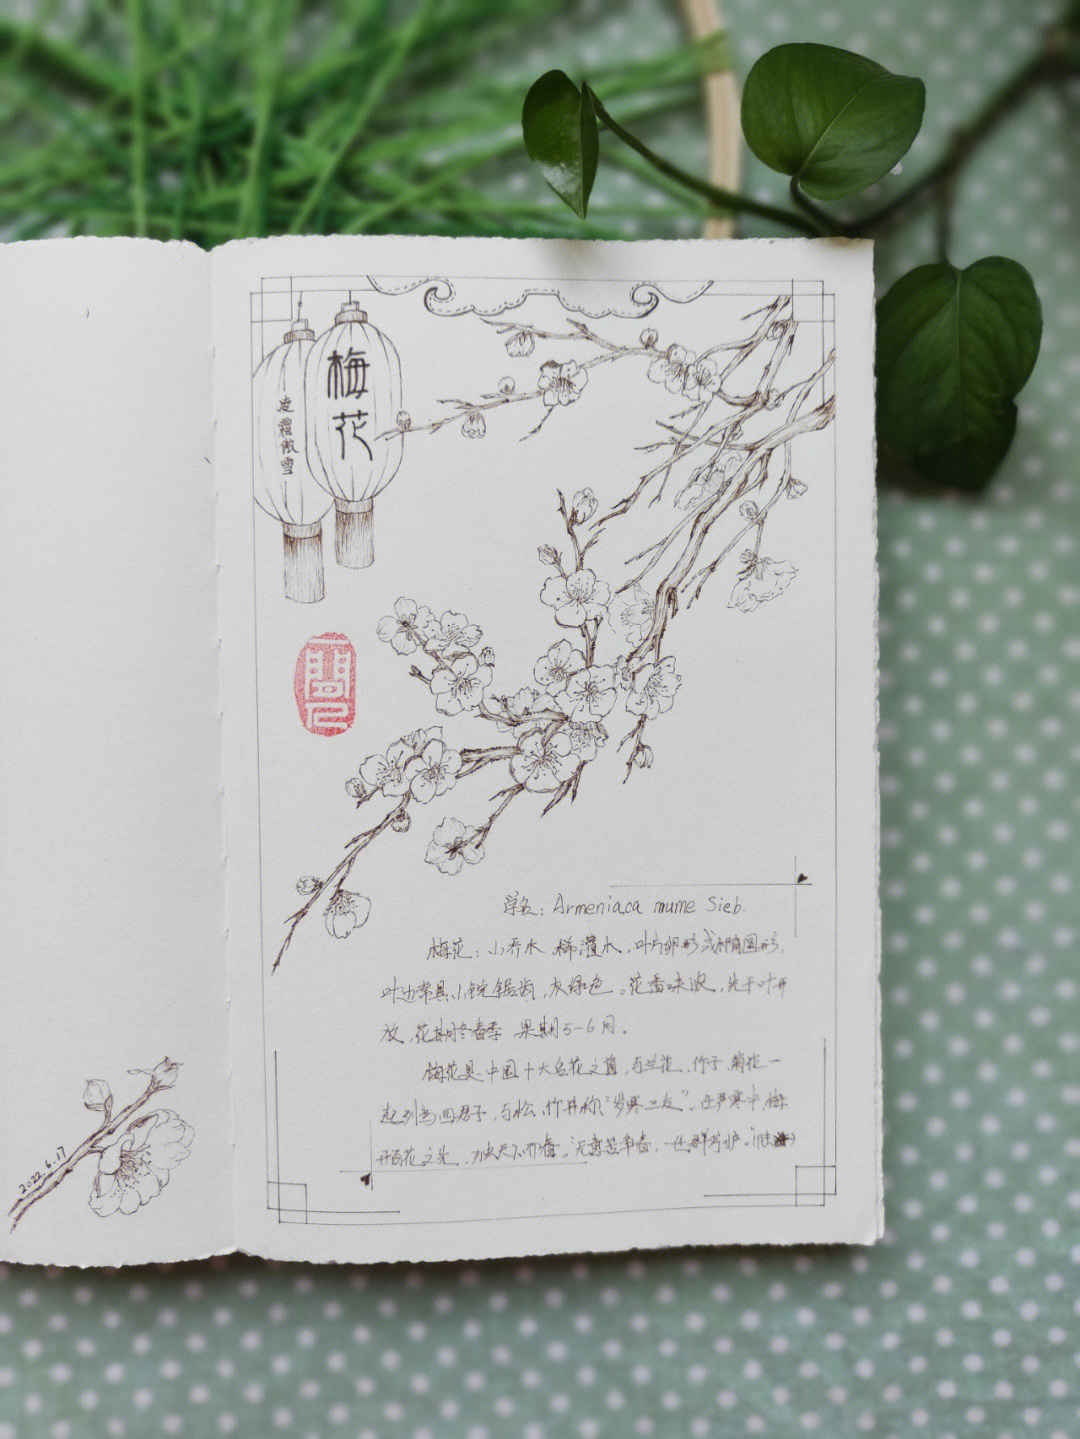 梅花
凌霜傲雪
學名: Armeniaca mume Sieb.
梅花：小乔木，稀灌木，叶片卵形或椭圆形，
叶边常具小锐锯齿，灰绿色。花香味浓，先于叶开
放，花期冬春季，果期5-6月。
梅花是中国十大名花之首，与兰花、竹子、菊花一
起列为四君子，与松、竹并称“岁寒三友”。在严寒中，梅
开百花之先，独天下而春。“无意苦争春，一任群芳妒。”
2022.6.17